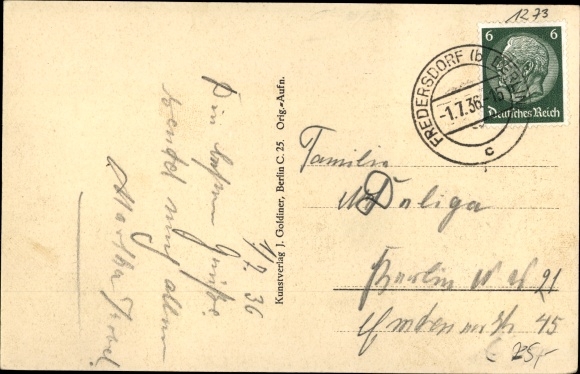 1273
6 6
Deutsches Reich
FREDERSDORF (b. BERLIN)
-1.7.36.-15
c
Kunstverlag J. Goldiner, Berlin C. 25. Orig.-Aufn.
1/7. 36
Die besten Grüße
sendet Euch allen
Martha
Familie
Daliga
Berlin N W 21
45
25,-